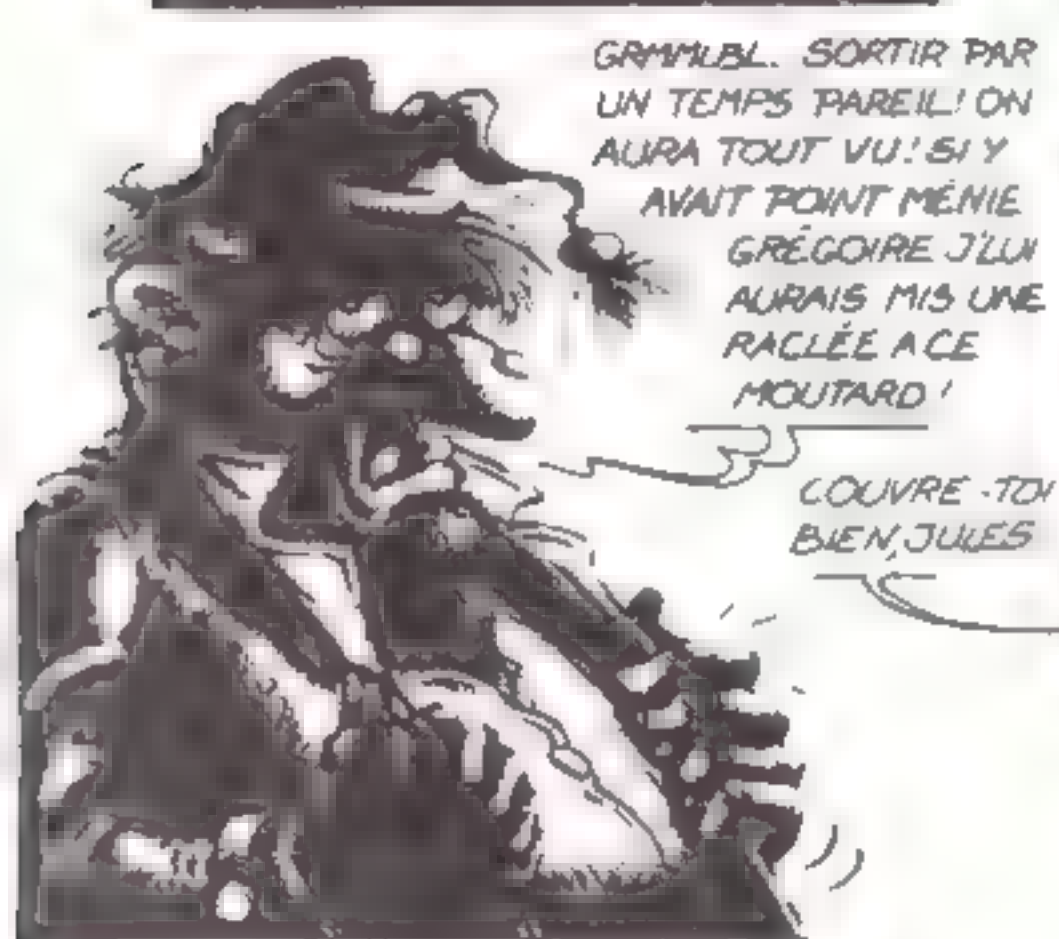 GRMMLBL. SORTIR PAR
UN TEMPS PAREIL! ON
AURA TOUT VU! SI Y
AVAIT POINT MÉNIE
GRÉGOIRE J'LUI
AURAIS MIS UNE
RACLÉE A CE
MOUTARD!
COUVRE-TOI
BIEN, JULES